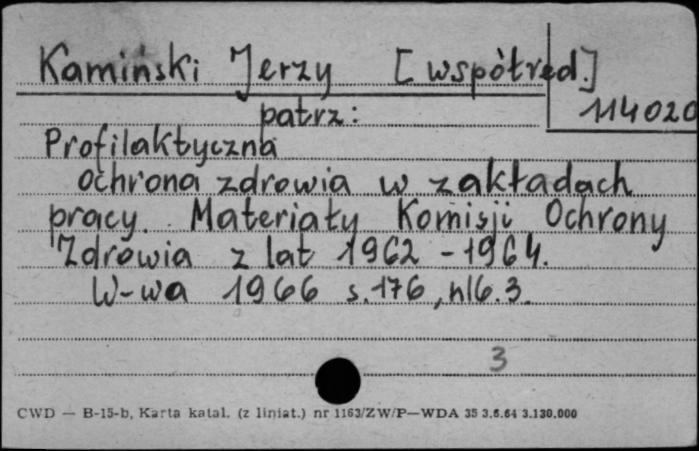 Kamiński Jerzy [współred.]
114020
patrz:
Profilaktyczna
ochrona zdrowia w zakładach
pracy. Materiały Komisji Ochrony
Zdrowia z lat 1962 - 1964.
W-wa 1966 s. 176, nlb. 3.
3
CWD — B-15-b, Karta katal. (z liniat.) nr 1163/ZW/P—WDA 35 3.6.64 3.130.000